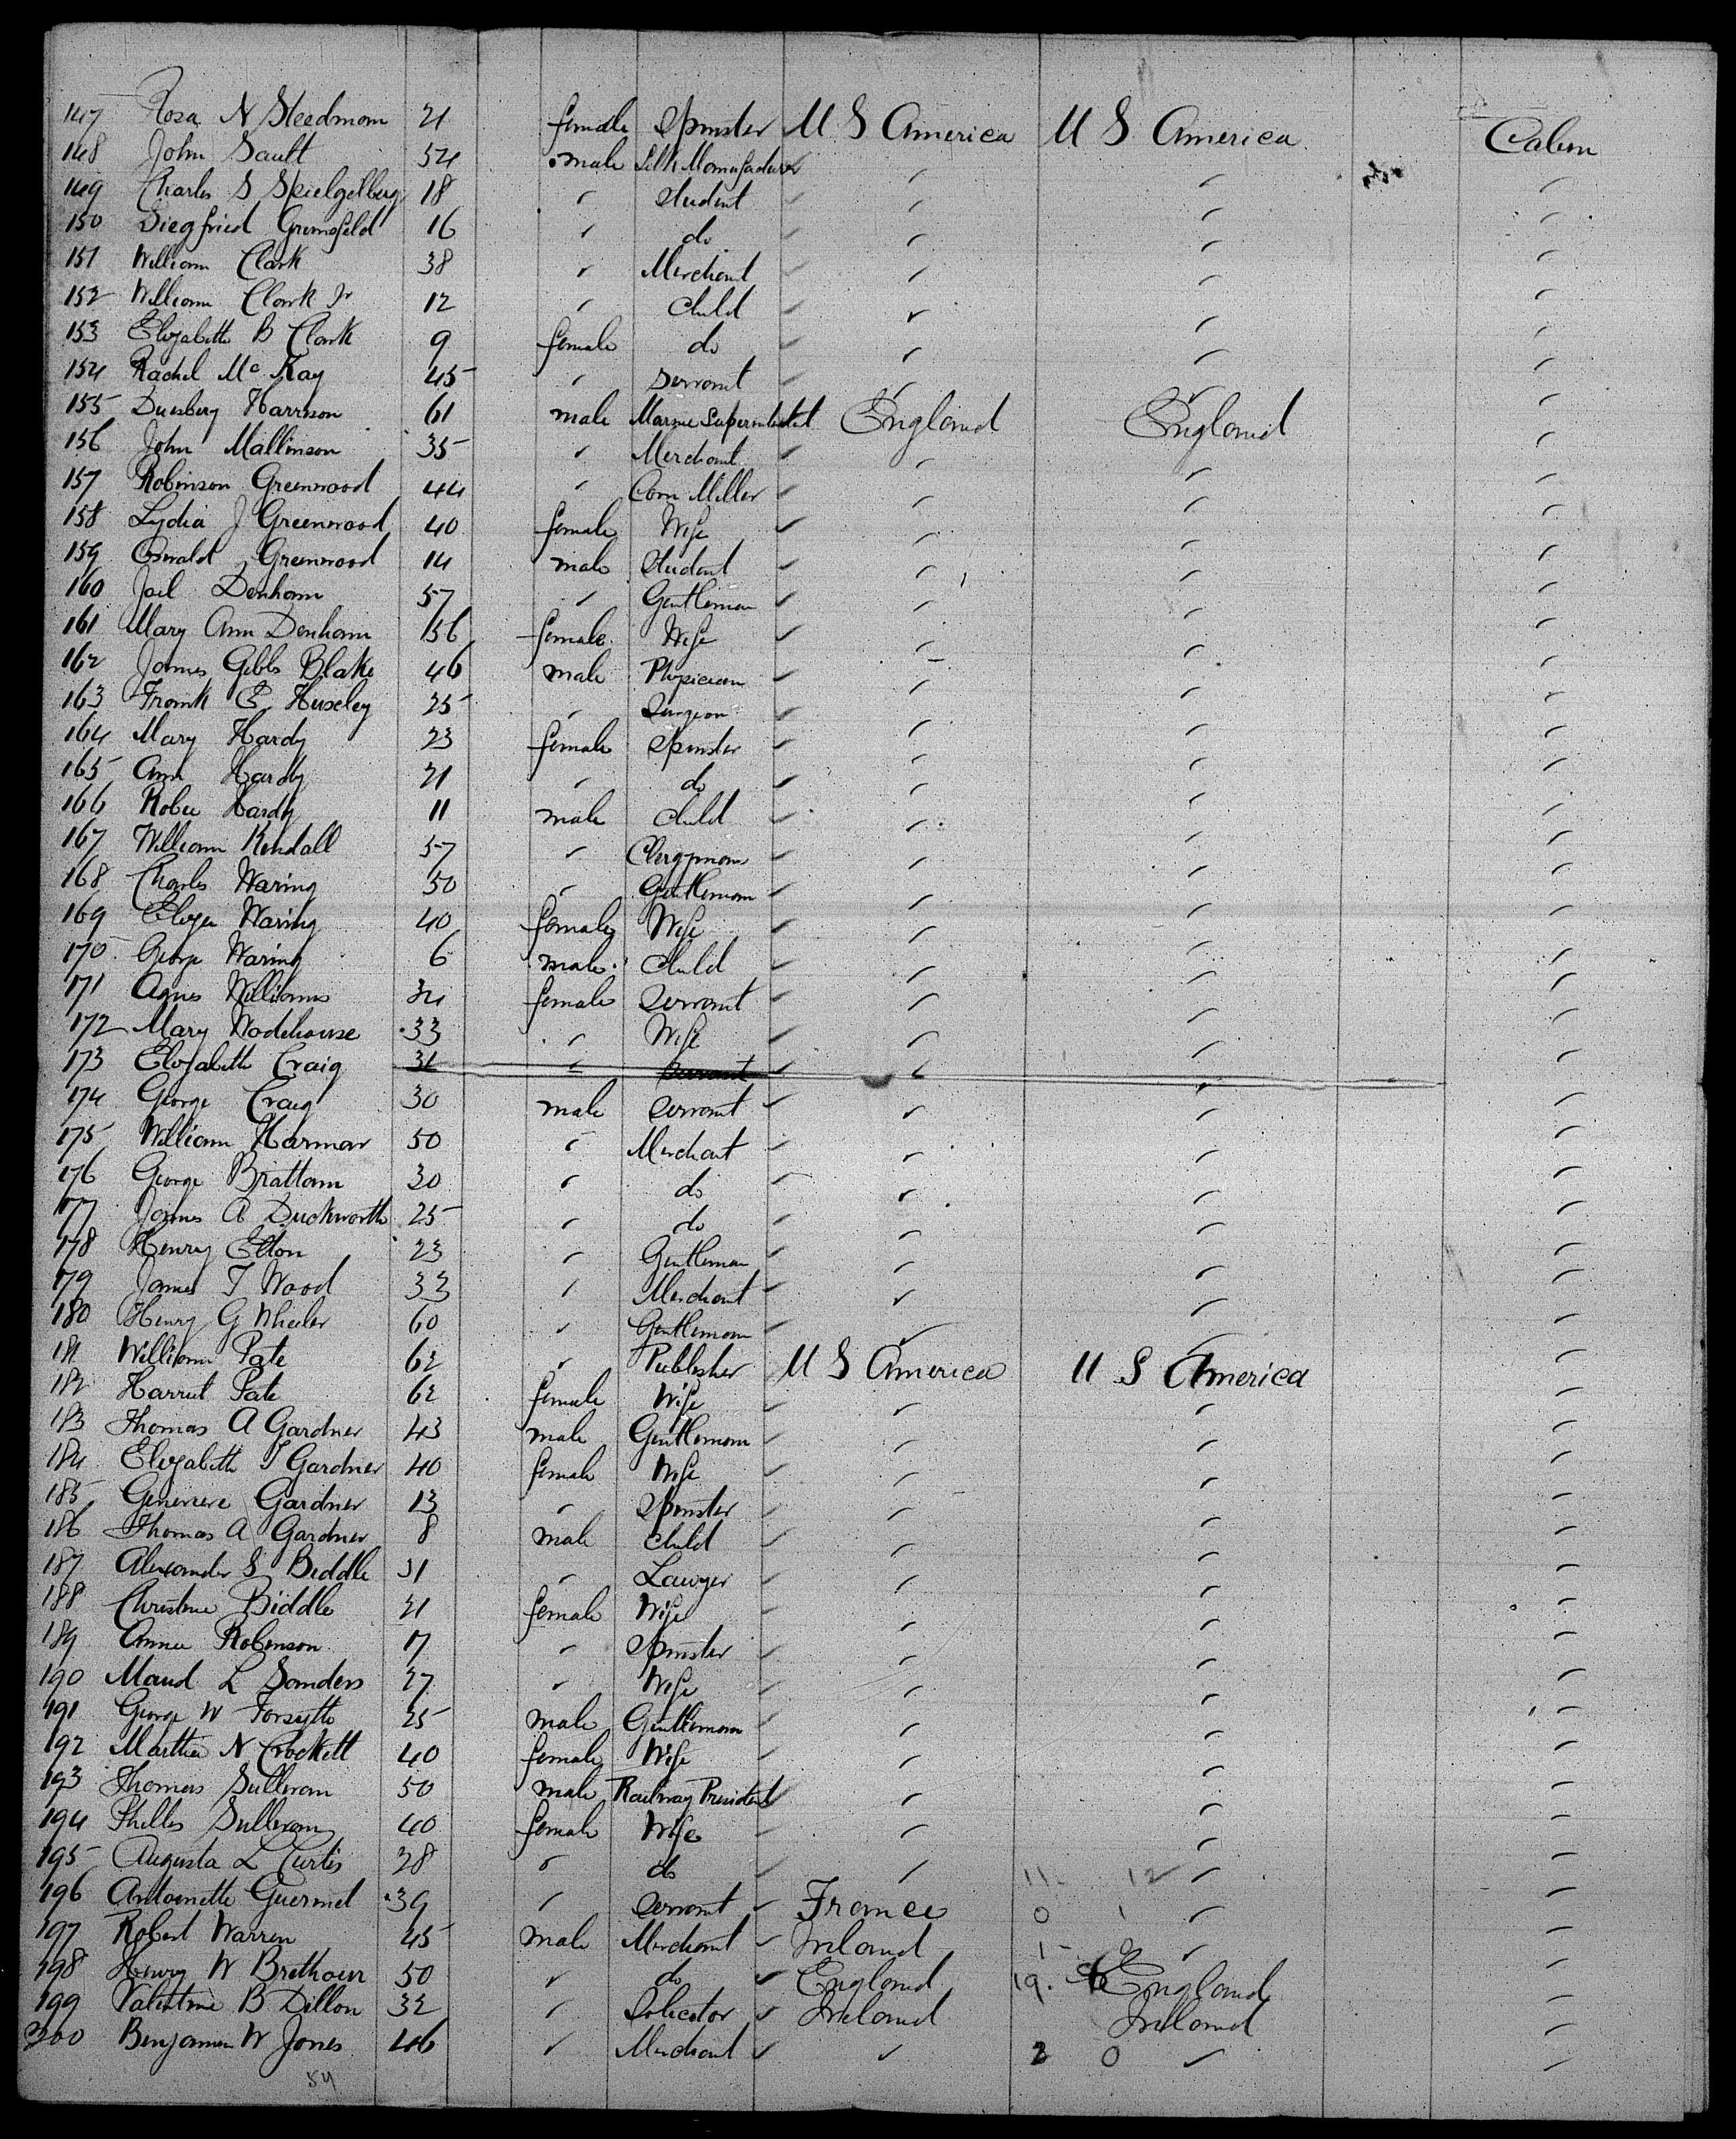 147 Rosa N Steedman 21 female Spinster U S America U S America Cabin
148 John Sault 54 male Silk Manufacturer
149 Charles S Spielgelberg 18 " Student
150 Siegfried Grunsfeld 16 " do
151 William Clark 38 " Merchant
152 William Clark Jr 12 " Child
153 Elizabeth B Clark 9 female do
154 Rachel Mc Kay 45 " Servant
155 Duesbery Harrison 61 male Marine Superintendent England England
156 John Mallinson 35 " Merchant
157 Robinson Greenwood 44 " Corn Miller
158 Lydia J Greenwood 40 female Wife
159 Oswald Greenwood 14 male Student
160 Joel Denham 57 " Gentleman
161 Mary Ann Denham 56 female Wife
162 James Gibbs Blake 46 male Physician
163 Frank E Huxley 25 " Surgeon
164 Mary Hardy 23 female Spinster
165 Ann Hardy 21 " do
166 Hardy 11 male Child
167 William Kendall 57 " Clergyman
168 Charles Waring 50 " Gentleman
169 Eliza Waring 40 female Wife
170 George Waring 6 male Child
171 Agnes Williams 34 female Servant
172 Mary Wodehouse 33 " Wife
173 Elizabeth Craig 31 " Servant
174 George Craig 30 male Servant
175 William Harman 50 " Merchant
176 George Brattam 30 " do
177 James A Duckworth 25 " do
178 Henry Elton 23 " Gentleman
179 James T Wood 33 " Merchant
180 Henry G Wheeler 60 " Gentleman
181 William Pate 62 " Publisher U S America U S America
182 Harriet Pate 62 female Wife
183 Thomas A Gardner 43 male Gentleman
184 Elizabeth T Gardner 40 female Wife
185 Genevieve Gardner 13 " Spinster
186 Thomas A Gardner 8 male Child
187 Alexander S Biddle 31 " Lawyer
188 Christine Biddle 21 female Wife
189 Annie Robinson 17 " Spinster
190 Maud L Sanders 27 " Wife
191 George W Forsyth 25 male Gentleman
192 Martha N Crockett 40 female Wife
193 Thomas Sullivan 50 male Railway President
194 Sullivan 40 female Wife
195 Augusta L Curtis 28 " do 11 12
196 Antoinette 39 " Servant France 0 1
197 Robert Warren 45 male Merchant Ireland 1
198 Henry W Brethour 50 " do England 19 England
199 Valentine B Dillon 32 " Solicitor Ireland Ireland
200 Benjamin W Jones 46 " Merchant " 2 0 "
54